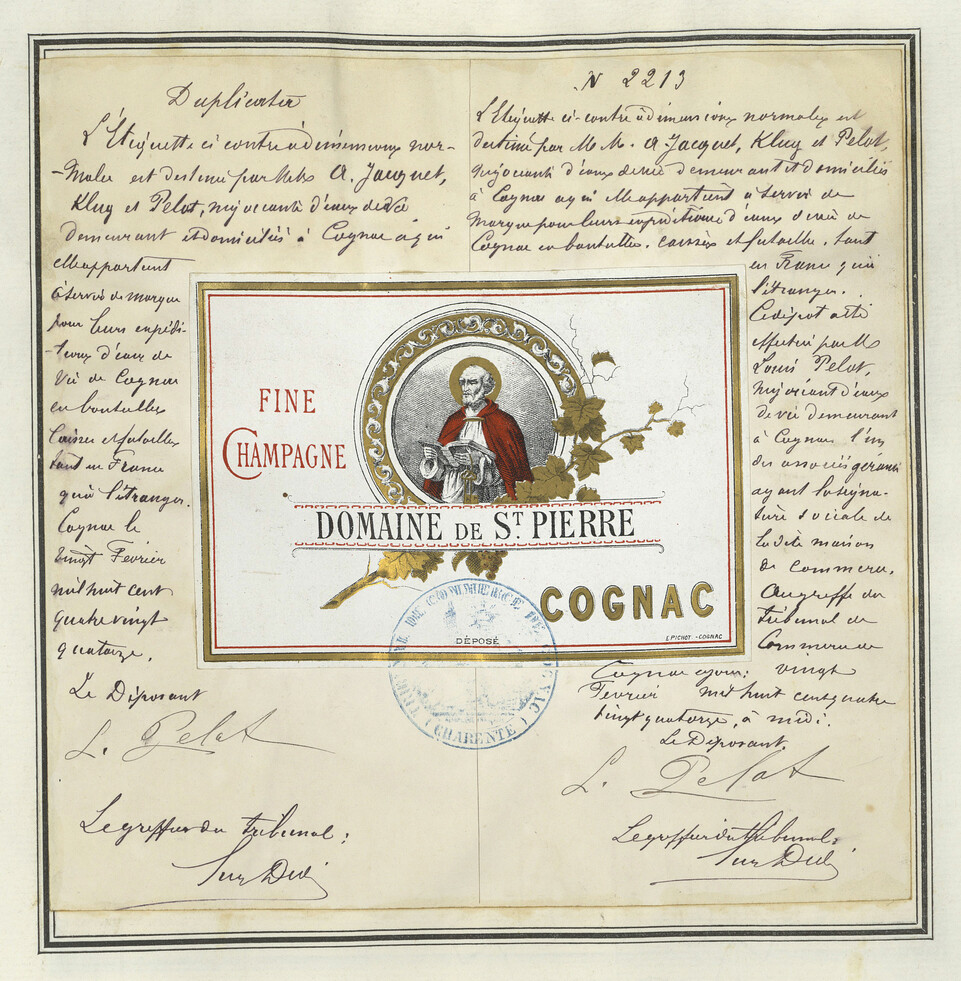 Duplicata
L'Etiquette ci contre à dimensions nor-
-males est destinée par M.M. A. Jacquet,
Klug et Pelat, négociants d'eaux de vie
demeurant et domiciliés à Cognac à qui
elle appartient
à servir de marque
pour leurs expédi-
-tions d'eaux de
Vie de Cognac
en bouteilles
Caisses et futailles
tant en France
qu'à l'étranger.
Cognac le
Vingt Février
mil huit cent
quatre vingt
quatorze.
Le Déposant
L. Pelat
Le greffier du tribunal:
N 2213
L'Etiquette ci-contre à dimensions normales est
destinée par M.M. A Jacquet, Klug et Pelat,
négociants d'eaux de vie demeurant et domiciliés
à Cognac à qui elle appartient à servir de
Marque pour leurs expéditions d'eaux de vie de
Cognac en bouteilles, caisses et futailles, tant
en France qu'à
l'étranger.
Ce dépôt a été
effectué par M
Louis Pelat,
négociant d'eaux
de vie demeurant
à Cognac l'un
des associés gérants
ayant la signa-
-ture sociale de
la dite maison
de commerce.
Au greffe du
tribunal de
Commerce de
Cognac ce jour: vingt
Février mil huit cent quatre
vingt quatorze, à midi.
Le Déposant.
L. Pelat
Le greffier du tribunal:
FINE
CHAMPAGNE
DOMAINE DE ST PIERRE
COGNAC
DÉPOSÉ
L. PICHOT - COGNAC
TRIBUNAL DE COMMERCE DE COGNAC
(CHARENTE)